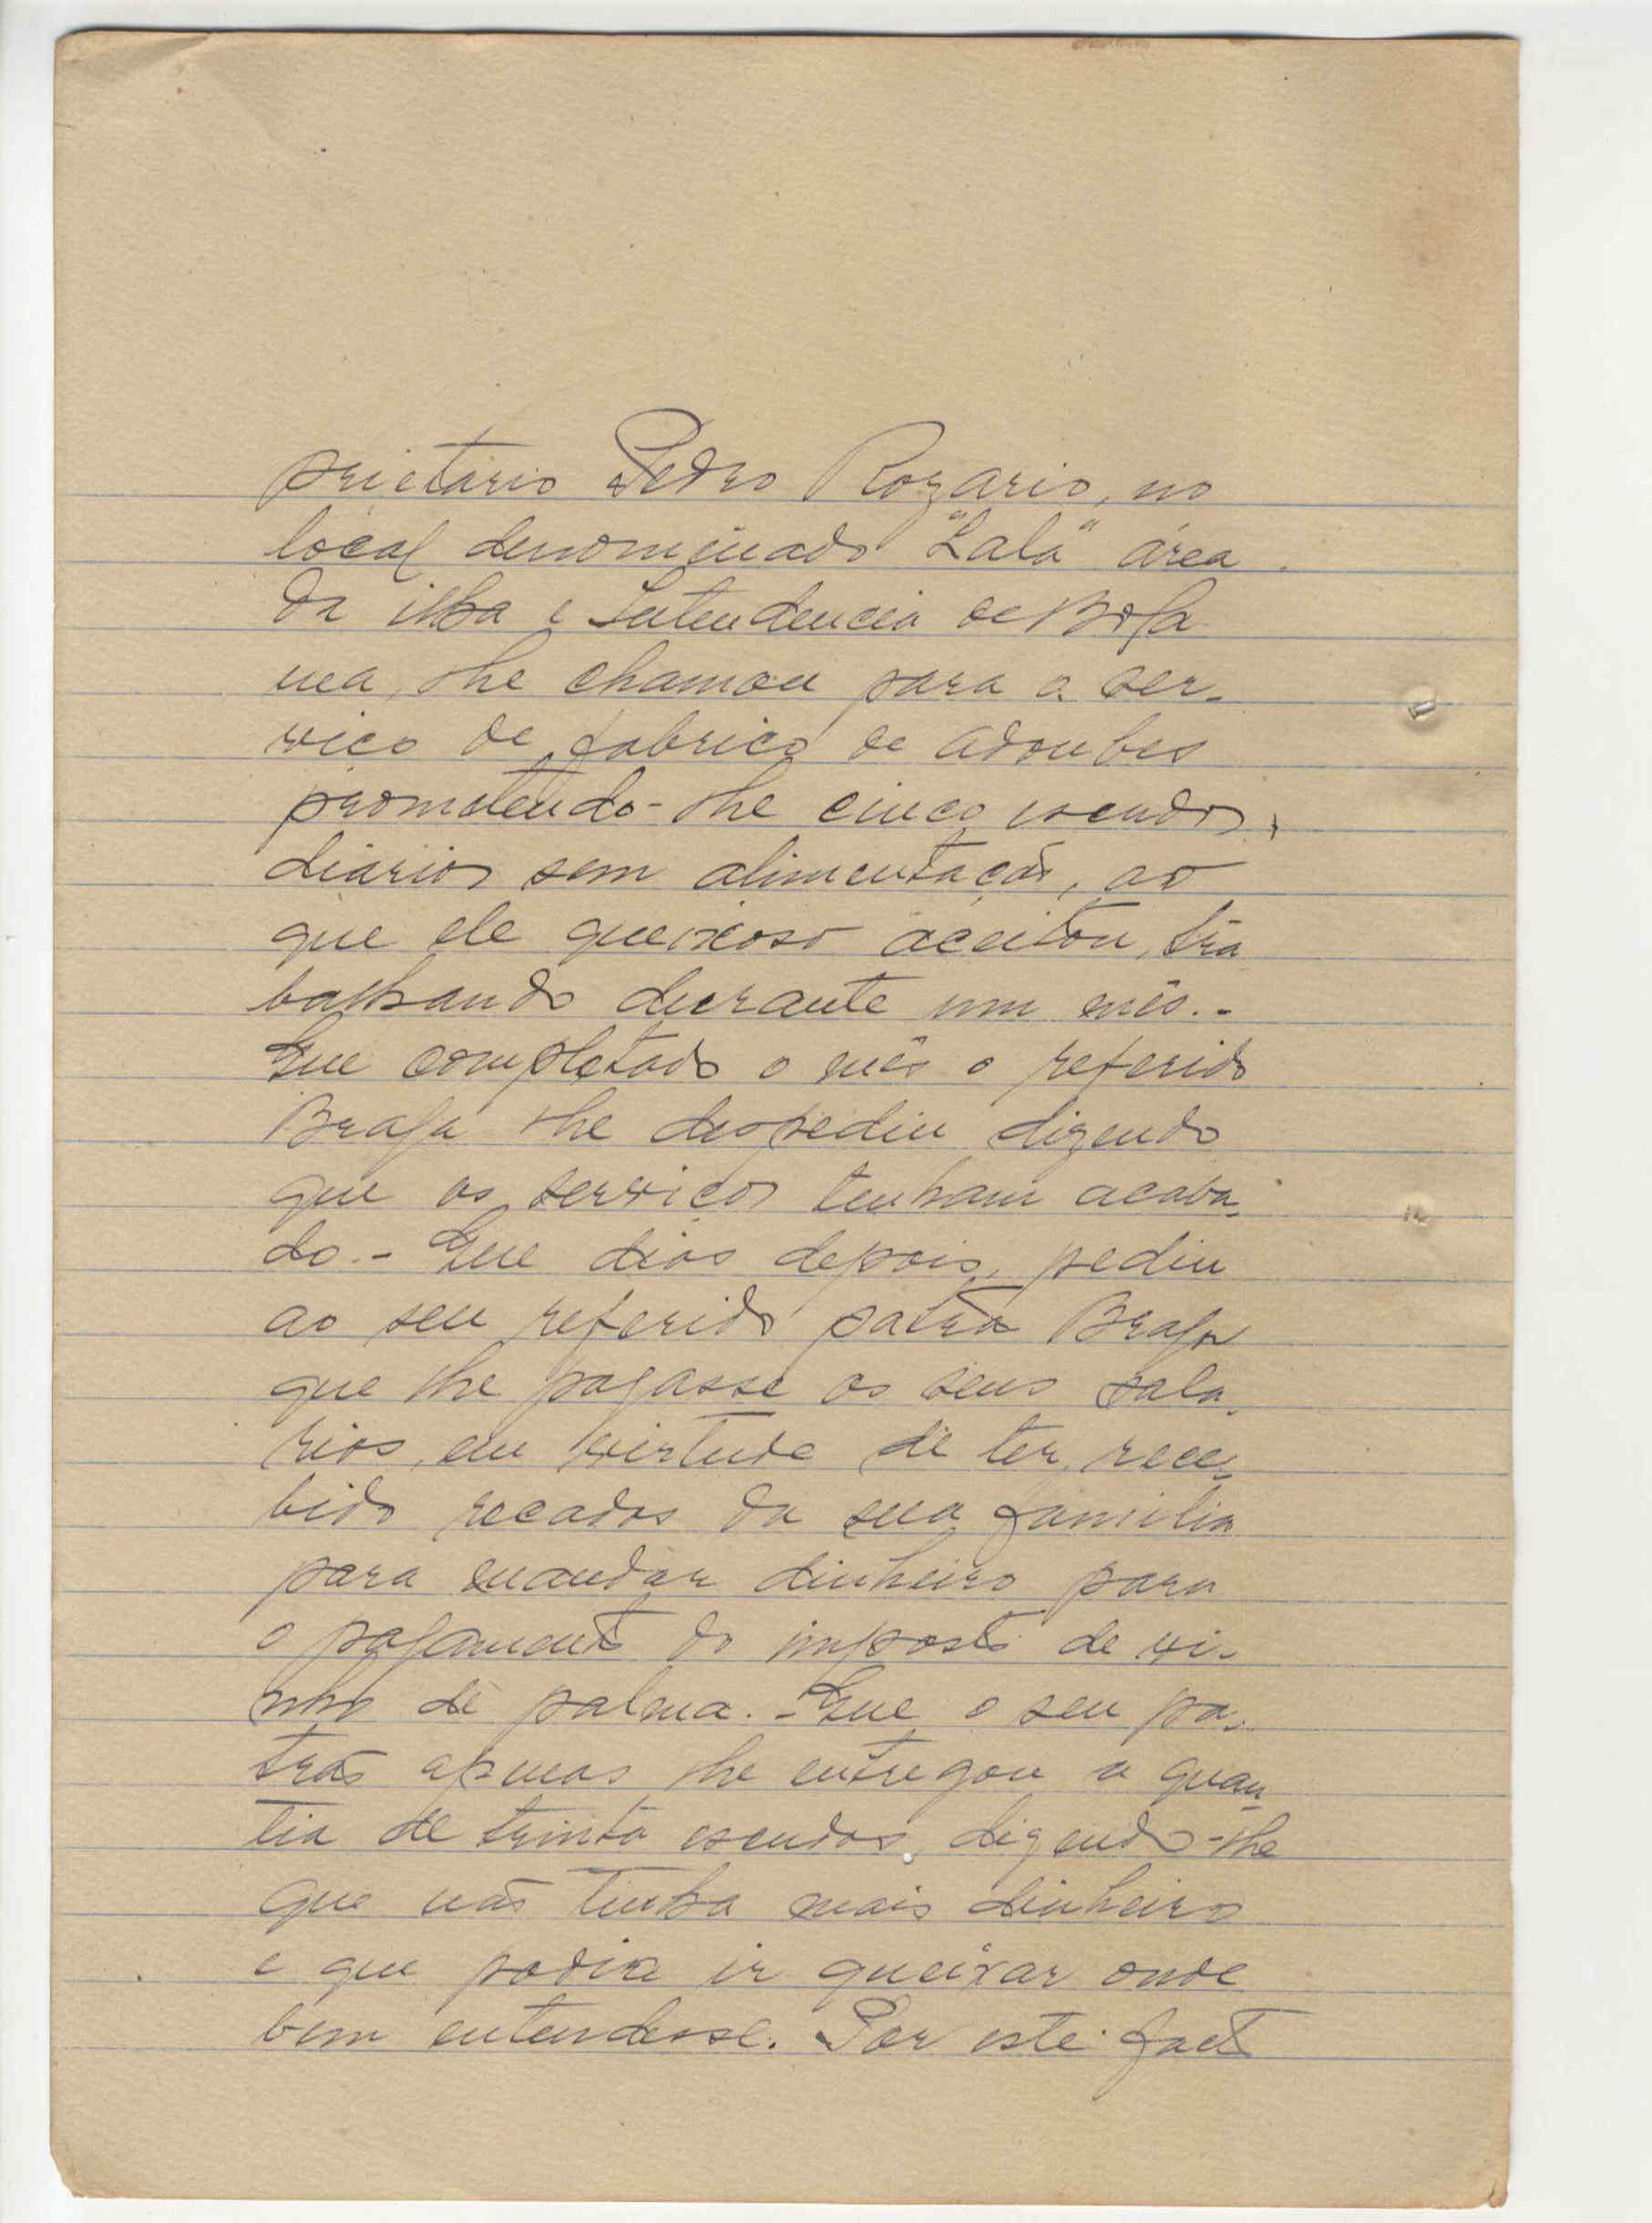 prietario Pedro Rozario, no
local denominado "Lala" área
da ilha e Intendencia de Bola
ma, lhe chamou para o ser-
viço de fabrico de adoubes
prometendo-lhe cinco escudos,
diarios sem alimentação, ao
que ele queixoso aceitou, tra
balhando durante um mês.-
Que completado o mês o referido
Braga lhe despediu dizendo
que os serviços tenham acaba-
do.- Que dias depois, pediu
ao seu referido patrão Braga
que lhe pagasse os seus sala-
rios, em virtude de ter rece-
bido recados da sua familia
para mandar dinheiro para
o pagamento do imposto de vi-
nho de palma.- Que o seu pa-
trão apenas lhe entregou a quan-
tia de trinta escudos, dizendo-lhe
que não tinha mais dinheiro
e que podia ir queixar onde
bem entendesse. Por este facto